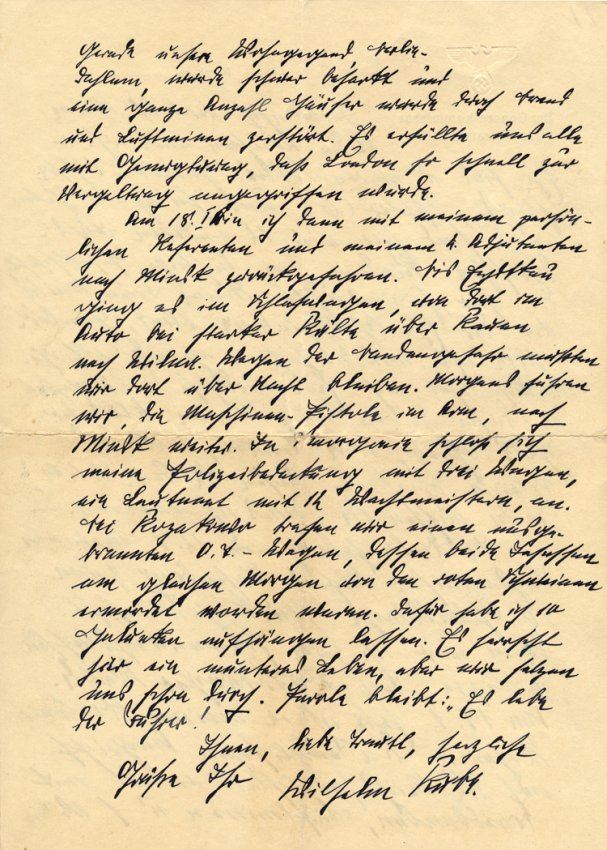 Gerade unsere Wohngegend Berlin-
Dahlem, wurde schwer beharkt und
eine ganze Anzahl Häuser wurde durch Brand
und Luftminen zerstört. Es erfüllte uns alle
mit Genugtuung, daß London so schnell zur
Vergeltung angegriffen wurde.
Am 18. I. bin ich dann mit meinem persön-
lichen Referenten und meinem Adjutanten
nach Minsk zurückgefahren. Bis Eydtkau
ging es im Schlafwagen, von dort im
Auto bei starker Kälte über Kauen
nach Wilna. Wegen der Bandengefahr mußten
wir dort über Nacht bleiben. Morgens fuhren
wir, die Maschinen-Pistole im Arm, nach
Minsk weiter. In schloß sich
meine Polizeibedeckung mit drei Wagen,
ein Leutnant mit 12 Wachtmeistern, an.
Bei trafen wir einen ausge-
brannten O.T.-Wagen, dessen beide Insassen
am gleichen Morgen von den roten Schweinen
ermordet worden waren. Dafür habe ich 10
Halunken aufhängen lassen. Es herrscht
hier ein munteres Leben, aber wir setzen
uns schon durch. Parole bleibt: „Es lebe
der Führer!
Ihnen, liebe Trautl, herzliche
Grüße Ihr Wilhelm Kube.